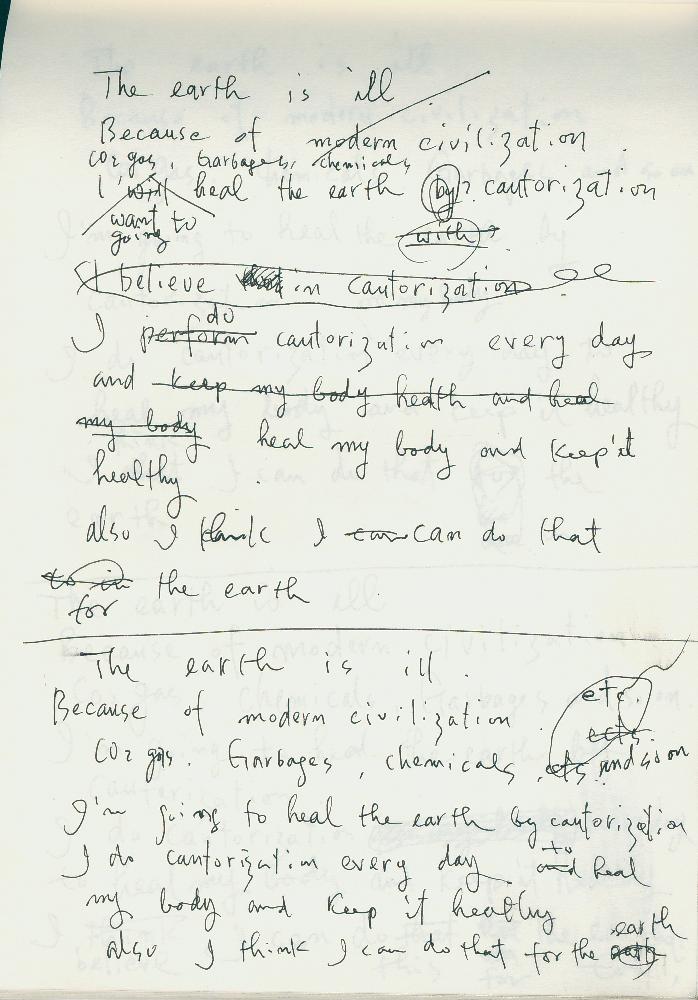 The earth is ill
Because of modern civilization
CO2 gas, Garbages, chemicals
I will heal the earth by? cautorization
want to
going
with
I believe in cautorization
do
I perform cautorization every day
and keep my body health and heal
my body heal my body and keep it
healthy
also I think I can can do that
to in the earth
for
The earth is ill.
Because of modern civilization
etc.
ects.
CO2 gas. Garbages, chemicals, ets and so on
I'm going to heal the earth by cautorization
to
I do cautorization every day and heal
my body and keep it healthy
earth
also I think I can do that for the earth